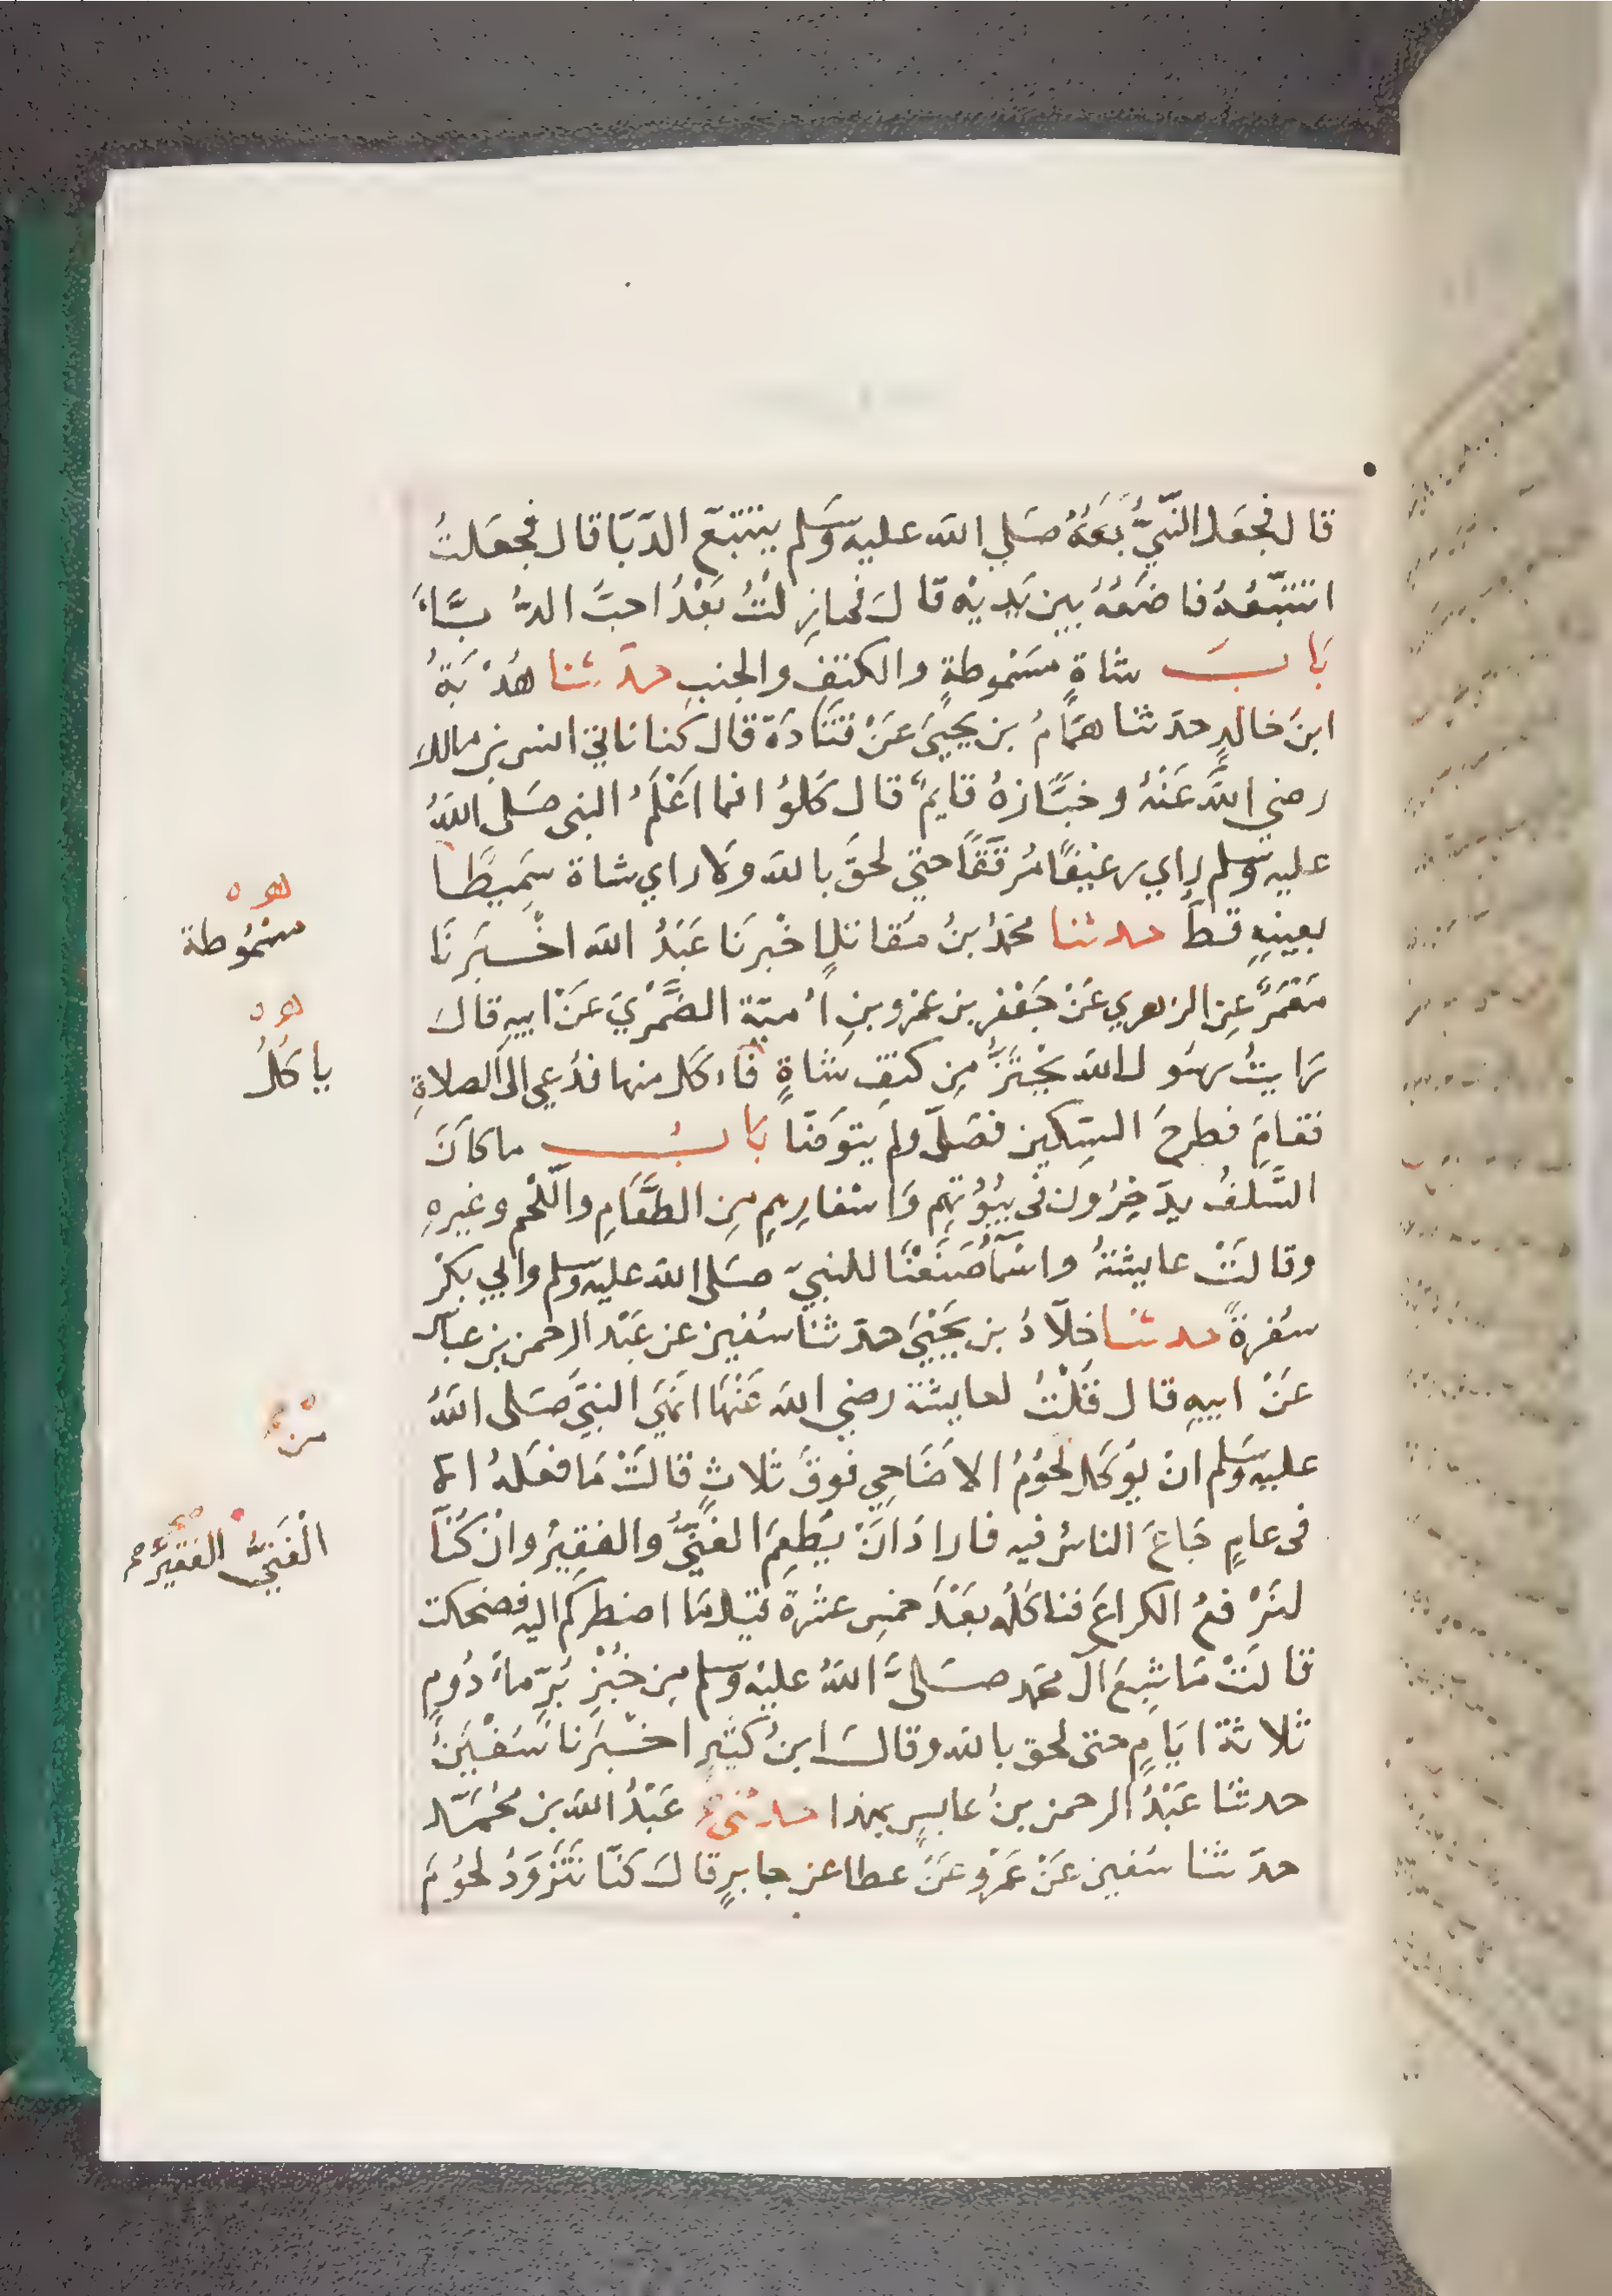 قال فجعل النَّبيُّ بَعَهُ صَلي الله عليه وسَلم يتتبّع الدّبّا قال فجعَلتُ
اتتبّعُهُ فاضعُهُ بين يَديْه قالَ فما زِلْتُ بَعْدُ احبَّ الدُّبَّاءَ
بَابَ شاةٍ مسَمْوطةٍ والكتفِ والجنبِ حدّثنا هُدْبَةُ
ابنَ خالدٍ حدثنا همَّامُ بن يحيَىَ عَنْ قتَادَة قال كنا ناتي انس بن مالك
رضي اللَّه عَنْهُ وخبَّازهُ قايمٌ قال كَلوُا فما اعْلَمُ النبى صَلى اللهُ
عليه وسلم راي رغيْفًا مُرقَّقًا حتي لحقَ بالله ولا راي شاة سَمِيطًا
بعينِهِ قطُّ حدثنا محمّدُ بنُ مُقاتلٍ اخْبرنَا عَبْدُ الله اخْبَرنَا
مَعْمَرٌ عِن الزهري عَنْ جَعْفر بن عمْرو بنِ اُميّة الضَّمْرِيَ عَنْ ابيهِ قالَ
رَايتُ رسُولَ الله يحْتَزُّ مِن كتفِ شاةٍ فَاءكَل منها فدُعي الى الصلاةِ
فقامَ فطرحَ السِّكين فصَلّى ولم يتوَضّا بَابُ ما كانَ
السَّلفُ يدّخِرُون في بُيُوْتهِم وَاسْفارِهِم مِن الطَّعَامِ واللّحْمِ وغيرهِ
وقالتْ عايشةُ واسْمَا صَنَعْنَا للنبيّ صَلى الله عليه وسلم وابي بكرْ
سُفرةً حدثنا خلّادُ بن يحَيْىَ حدّثنا سُفين عن عَبْد الرحمن بن عابس
عَنْ ابيهِ قال قُلْتُ لعايشة رضي الله عَنْهَا انَهَي النبيَّ صَلى اللهُ
عليه وسَلم انْ يوكَل لحُوْمُ الاضَاحِي فوقَ ثلاثٍ قالتْ مَا فعَلهُ الا
فى عامٍ جَاعَ الناسُ فيه فارادَ انْ يُطعِمَ الغنيُّ والفقيرُ وانْ كُنّا
لنَرْفعُ الكراعَ فناكلُهُ بعْدَ خمسِ عشْرةَ قيلَ مَا اضطركم اليه فضحكت
قالتْ مَا شبِعَ آل محمّد صَلىَّ اللهُ عليْه وسلم مِن خُبْزِ بُرٍّ ماءْدُومٍ
ثلاثة ايَامٍ حتى لحق بالله وقالَ ابنُ كثِيرٍ اخْبَرنا سُفْيَنُ
حدثنا عَبْدُ الرحمن بنُ عابسٍ بهذا حدثنىُ عَبْدُ الله بن مُحمَّد
حدّثنا سُفين عَنْ عَمْرو عَنْ عطا عن جابرٍ قالَ كُنّا نَتَزْوَدُ لحُوُمَ
هو ه
مسْمُوطة
هو ه
ياكلُ
منْ
الغَنيَُّ الفقيْرَ